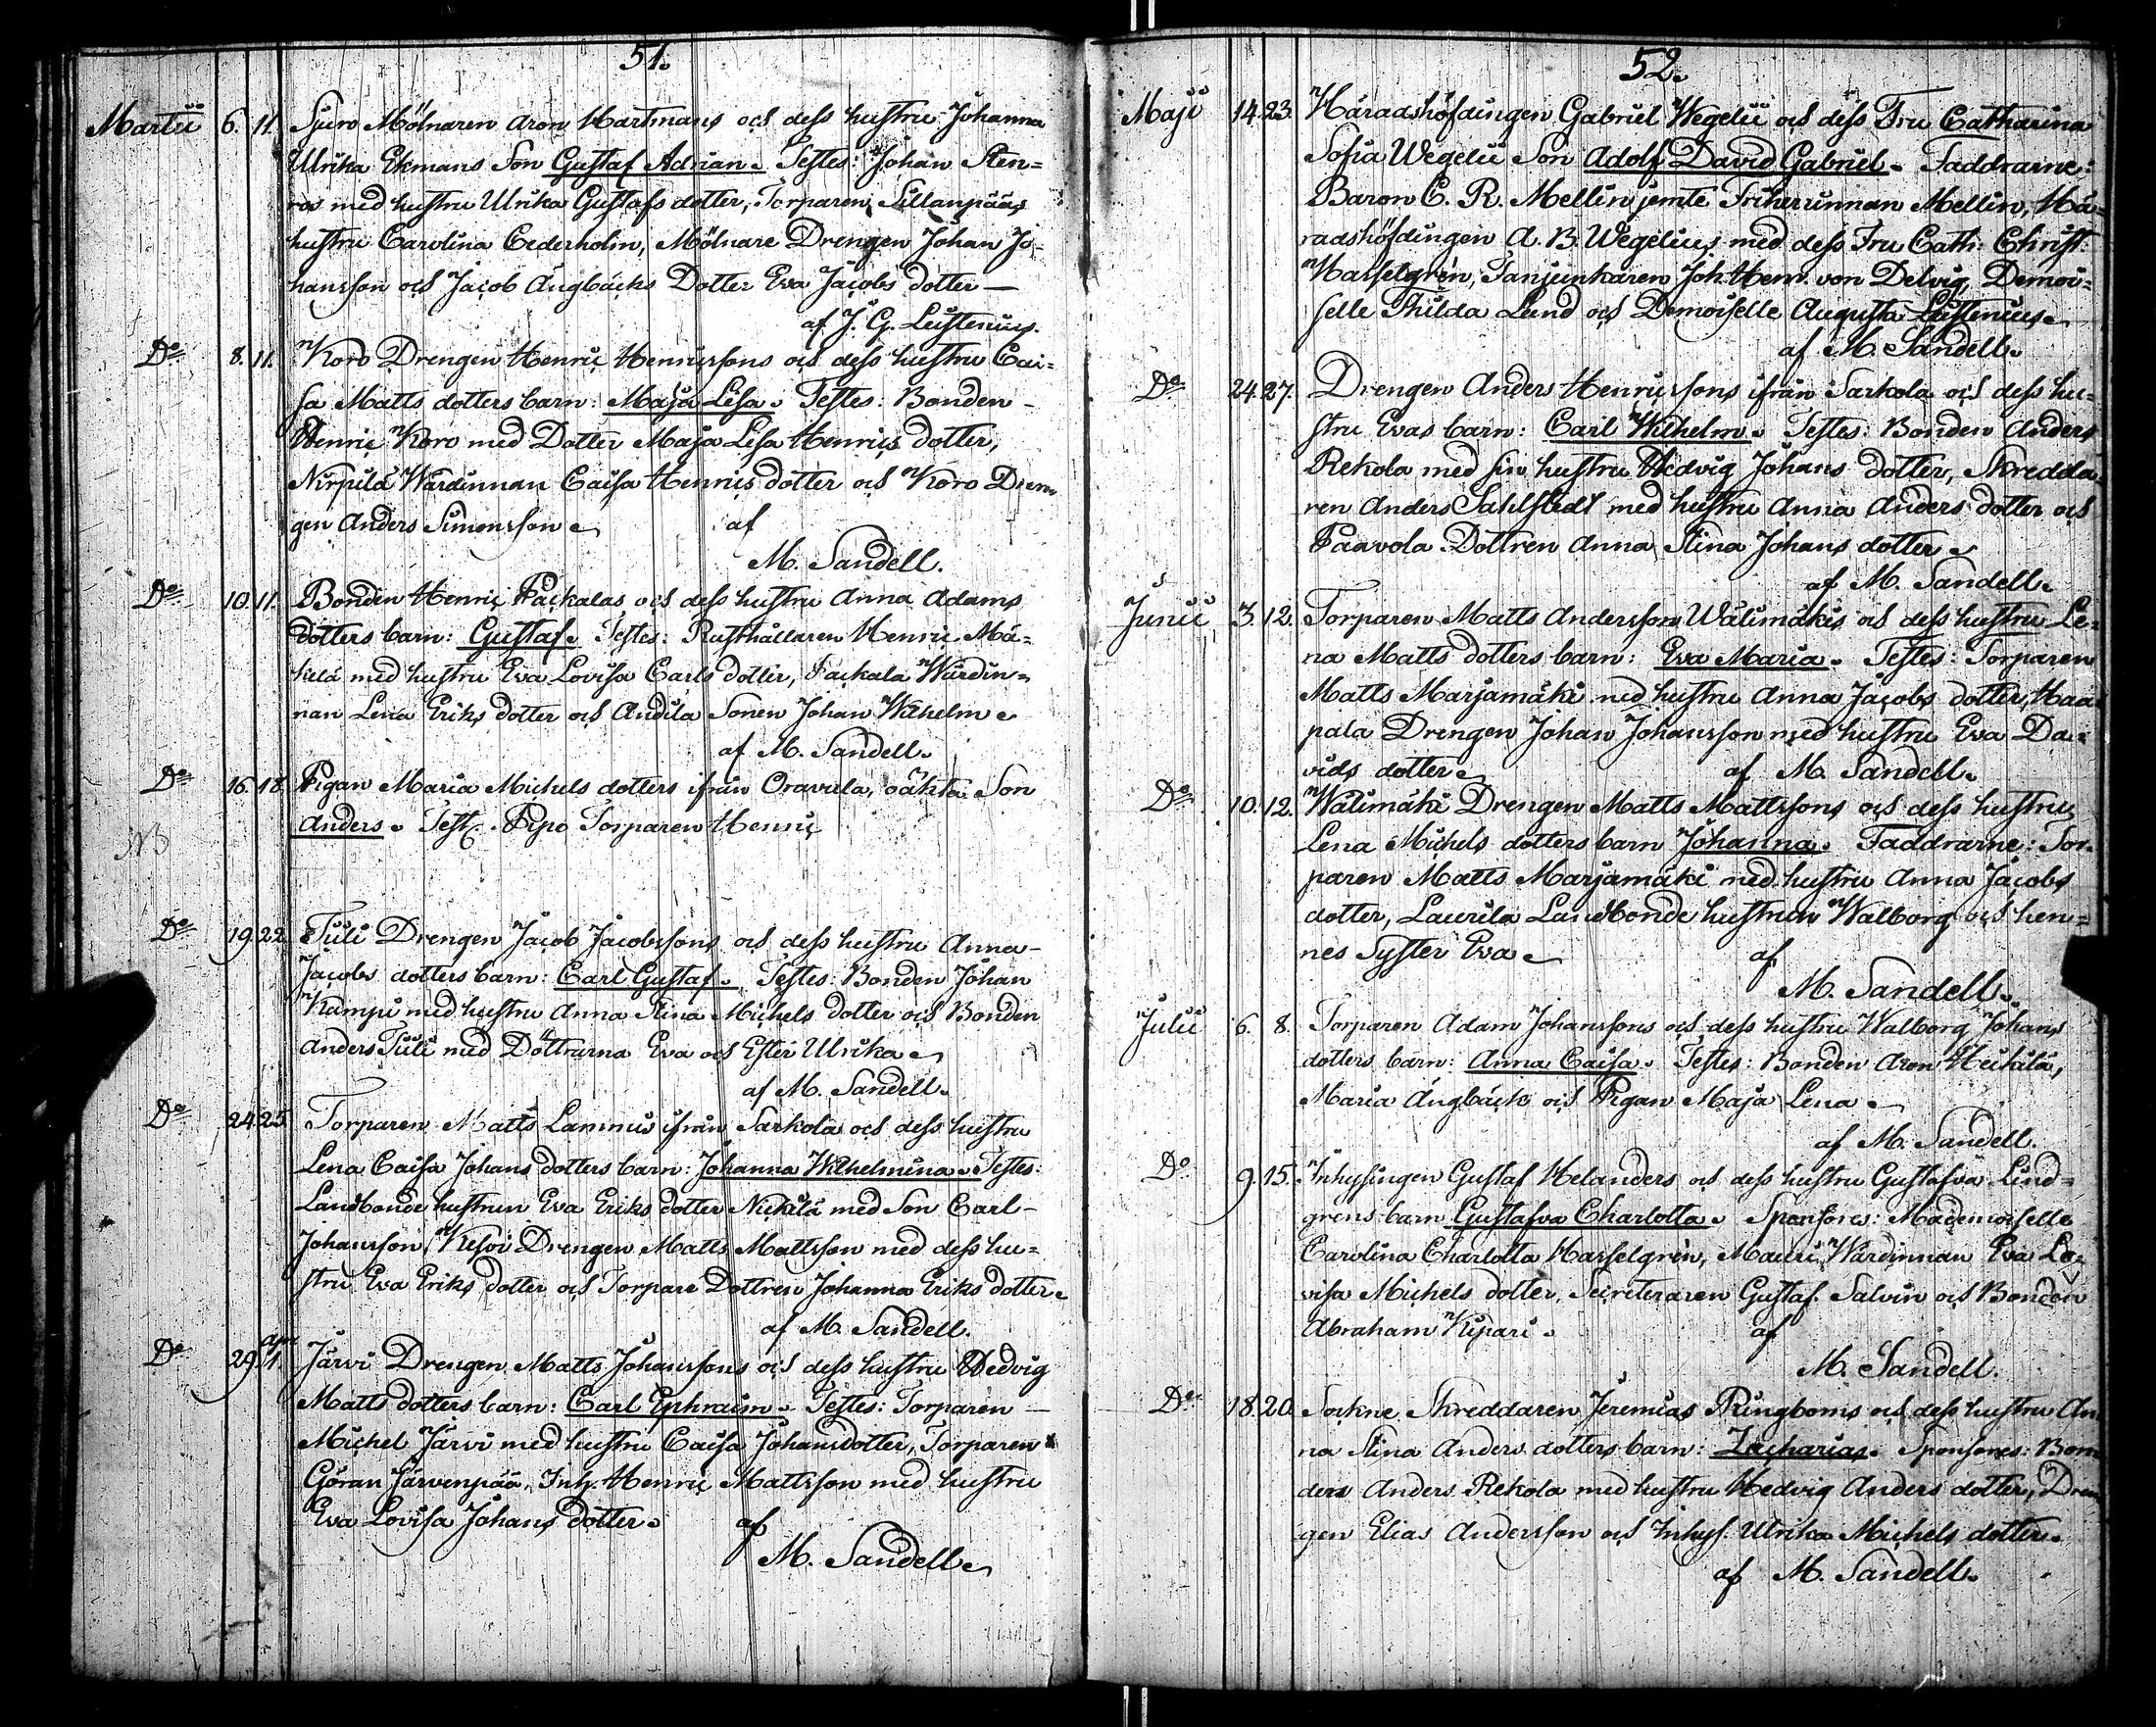 51.
Martii 6. 11. Sjuro Mölnaren Aron Hartmans och dess hustru Johanna
Ulrika Ekmans Son Gustaf Adrian. Testes: Johan Sten=
ros med hustru Ulrika Gustafs dotter, Torparen Sillanpääs
hustru Carolina Cederholm, Mölnare Drengen Johan Jo-
hansson och Jacob Ängbäcks Dotter Eva Jacobs dotter —
af J. G. Leistenius.
Do 8. 11. Koro Drengen Henric Henricssons och dess hustru Cai=
sa Matts dotters barn: Maja Lisa. Testes: Bonden
Henric Koro med Dotter Maja Lisa Henrics dotter,
Nirpilä Wärdinnan Caisa Henrics dotter och Koro Dren
gen Anders Simonsson af
M. Sandell.
Do 10. 11. Bonden Henric Packalas och dess hustru Anna Adams
dotters barn: Gustaf. Testes: Rusthållaren Henric Mä=
kelä med hustru Eva Lovisa Carls dotter, Packala Wärdin=
nan Lena Eriks dotter och Andila Sonen Johan Wilhelm
af M. Sandell.
Do 16. 18. Pigan Maria Michels dotters ifrån Oravala, oäkta Son
NB Anders. Test. Pipo Torparen Henric
Do 19. 22. Tuli Drengen Jacob Jacobssons och dess hustru Anna
Jacobs dotters barn: Carl Gustaf. Testes: Bonden Johan
Kämpi med hustru Anna Stina Michels dotter och Bonden
Anders Tuli med Döttrarna Eva och Ester Ulrika
af M. Sandell.
Do 24. 25. Torparen Matts Lammis ifrån Sarkola och dess hustru
Lena Caisa Johans dotters barn: Johanna Wilhelmina. Testes:
Landbonde hustrun Eva Eriks dotter Nickilä med Son Carl
Johansson, Kesoi Drengen Matts Mattsson med dess hu=
stru Eva Eriks dotter och Torpare Dottren Johanna Eriks dotter
af M. Sandell.
Do 29. apr 1. Järvi Drengen Matts Johanssons och dess hustru Hedvig
Matts dotters barn: Carl Ephraim. Testes: Torparen
Michel Järvi med hustru Caisa Johansdotter, Torparen
Göran Järvenpää, Inh. Henric Mattsson med hustru
Eva Lovisa Johans dotter. af
M. Sandell
52.
Maji 14. 23. Häradshöfdingen Gabriel Wegelii och dess Fru Catharina
Sofia Wegelii Son Adolf David Gabriel. Faddrarne:
Baron C. R. Mellin jemte Friherinnan Mellin, Hä=
radshöfdingen A. B. Wegelius med dess Fru Cath: Christ:
Hasselgrén, Fanjunkaren Joh. Henr. von Delvig, Demoi=
selle Thilda Lund och Demoiselle Augusta Leistenius
af M. Sandell.
Do 24. 27. Drengen Anders Henricssons ifrån Sarkola och dess hu=
stru Evas barn: Carl Wilhelm. Testes: Bonden Anders
Rekola med sin hustru Hedvig Johans dotter, Skredda=
ren Anders Sahlstedt med hustru Anna Anders dotter och
Paavola Dottren Anna Stina Johans dotter
af M. Sandell.
Junii 3. 12. Torparen Matts Andersson Wälimäkis och dess hustru Le=
na Matts dotters barn: Eva Maria. Testes: Torparen
Matts Marjamäki med hustru Anna Jacobs dotter, Haa=
pala Drengen Johan Johansson med hustru Eva Da=
vids dotter af M. Sandell.
Do 10. 12. Wälimäki Drengen Matts Mattssons och dess hustru
Lena Michels dotters barn Johanna. Faddrarne: Tor=
paren Matts Marjamäki med hustru Anna Jacobs
dotter, Laurila Landbonde hustrun Walborg och hen=
nes Syster Eva af
M. Sandell.
Julii 6. 8. Torparen Adam Johanssons och dess hustru Walborg Johans
dotters barn: Anna Caisa. Testes: Bonden Aron Heikilä,
Maria Ängbäck och Pigan Maja Lena
af M. Sandell.
Do 9. 15. Inhysingen Gustaf Helanders och dess hustru Gustafva Lind=
grens barn Gustafva Charlotta. Sponsores: Mademoiselle
Carolina Charlotta Hasselgrén, Mauri Wärdinnan Eva Lo=
visa Michels dotter, Secreteraren Gustaf Salvin och Bonden
Abraham Kipari. af
M. Sandell.
Do 18. 20. Sockne Skreddaren Jeremias Ringboms och dess hustru An
na Stina Anders dotters barn: Zacharias. Sponsores: Bon
den Anders Rekola med hustru Hedvig Anders dotter, Dren
gen Elias Andersson och Inhys. Ulrika Michels dotter.
af M. Sandell.